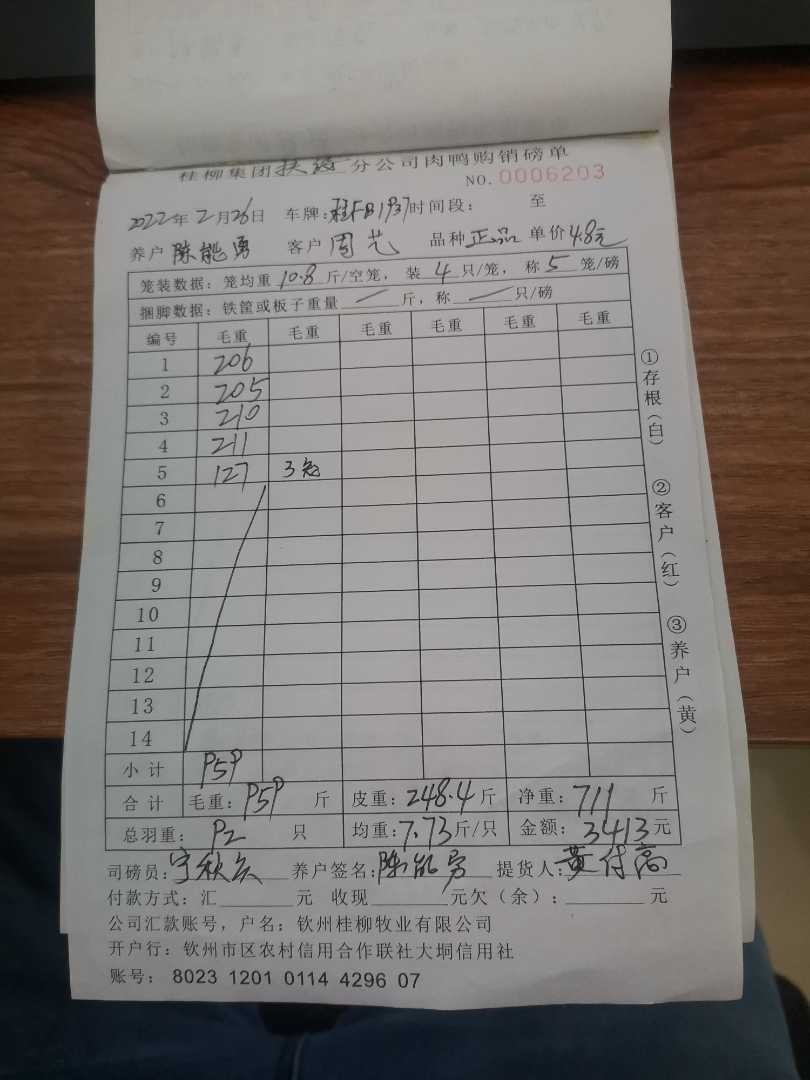 桂柳集团扶绥分公司肉鸭购销磅单
NO.0006203
2022年2月26日 车牌:桂FB1937时间段: 至
养户 陈能勇 客户 周艺 品种 正品 单价4.8元
笼装数据: 笼均重 10.8 斤/空笼, 装 4 只/笼, 称 5 笼/磅
捆脚数据: 铁筐或板子重量 / 斤, 称 / 只/磅
编号 毛重 毛重 毛重 毛重 毛重 毛重
1 206
2 205
3 210
4 211
5 127 3笼
6
7
8
9
10
11
12
13
14
小计 959
合计 毛重: 959 斤 皮重: 248.4 斤 净重: 711 斤
总羽重: 92 只 均重: 7.73斤/只 金额: 3413元
司磅员: 养户签名: 陈能勇 提货人: 黄付高
付款方式: 汇 元 收现 元欠(余): 元
公司汇款账号, 户名: 钦州桂柳牧业有限公司
开户行: 钦州市区农村信用合作联社大垌信用社
账号: 8023 1201 0114 4296 07
①存根(白)
②客户(红)
③养户(黄)